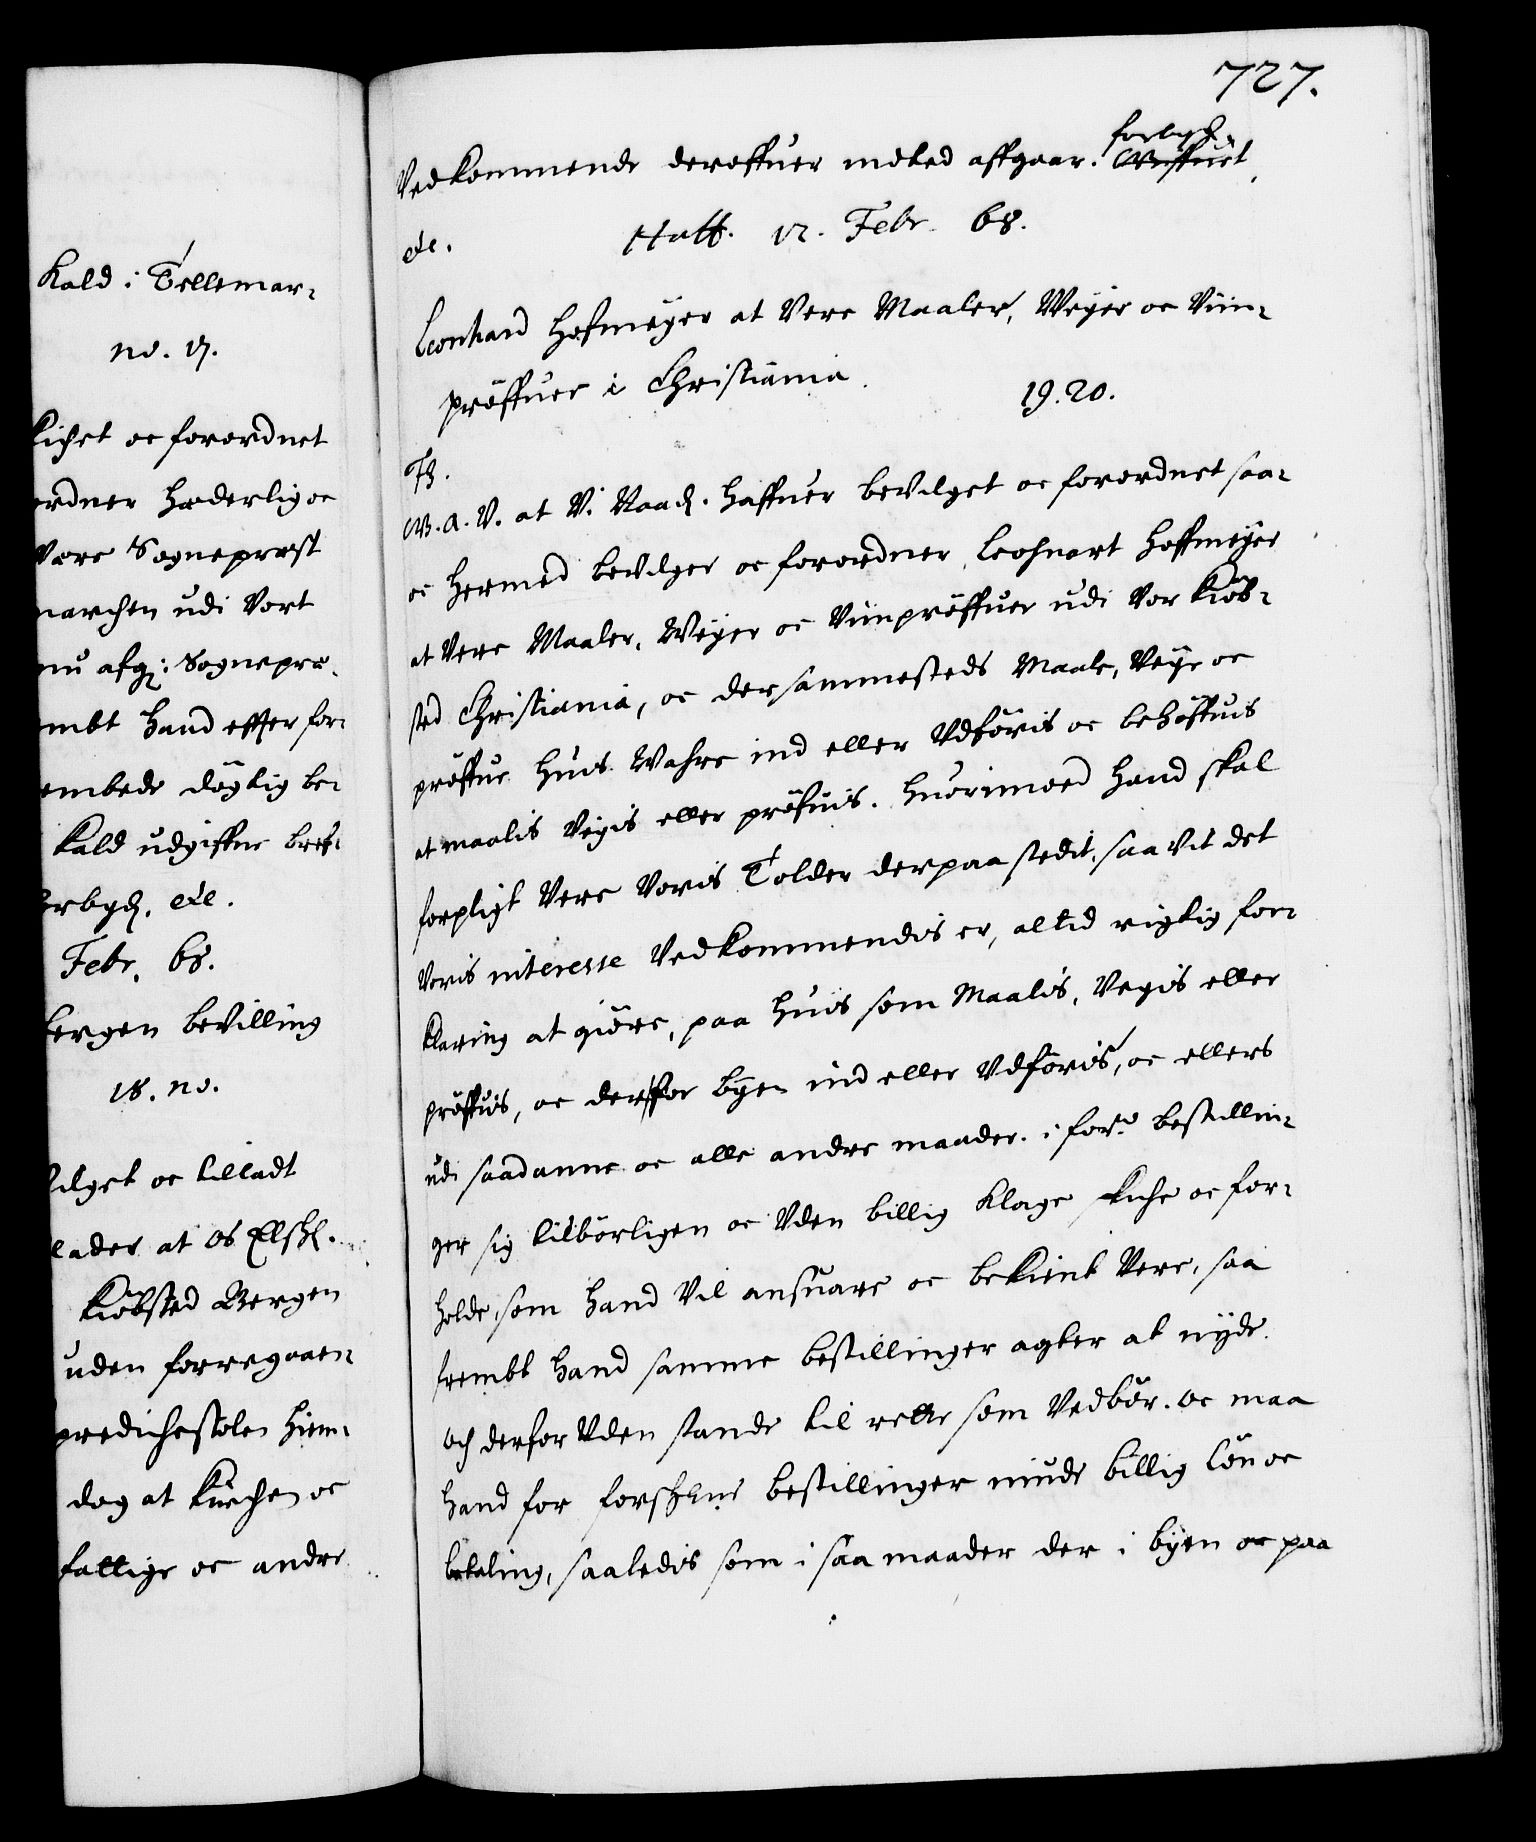 Kald i Tellemar-
no. 17.
kichet oc forordnet
ordner hæderlig oc
Være Sogneprest
marchen udi Vort
nu afg: Sognepre
embt hand effter for-
embede døgtig be-
Kald udgiffne bref-
Forbydendes. etc.
Febr. 68.
Bergen bevilling
18. no.
vilget oc tilladt
lader at os Elskel.
Kiöbsted Bergen
uden forregaaen-
predichestolen hiem-
dag at Kirchen oc
fattige oc andre
727.
Vedkommende deroffuer indted affgaar. forbyd.
etc. Haff. 12. Febr. 68.
Leonhard Hofmeyer at Vere Maaler, Weyer oc Viin-
pröffuer i Christiania
19.20.
F3.
G.A.V. at Vi Naad. haffuer bevilget oc forordnet saa-
oc hermed bevilger oc forordner Leohnart Hoffmeyer
at Vere Maaler, Weyer oc Viinpröffuer udi Vor Kiöb-
sted Christiania, oc dersammesteds Maale, Veye oc
pröffue huis Wahre ind eller Udföris oc behöffuis
at maalis Veyis eller pröfuis. huorimoed hand skal
forpligt Vere Voris Tolder derpaa stedit, saavit det
Voris interesse Vedkommendis er, altid rigtig for-
klaring at giöre, paa huis som Maalis, Vegis eller
pröffuis, oc derfor byen ind eller Udföris, oc ellers
udi saadanne oc alle andre maader i forne bestillin-
ger sig tilbörligen oc Uden billig Klage skiche oc for-
holde, som hand Vil ansuare oc bekient Vere, saa
frembt hand samme bestillinger agter at nyde
och derfor Uden stande til rette som Vedbör. oc maa
hand for forschrne bestillinger niude billig lön oc
betaling, saaledis som i saa maader der i byen oc paa